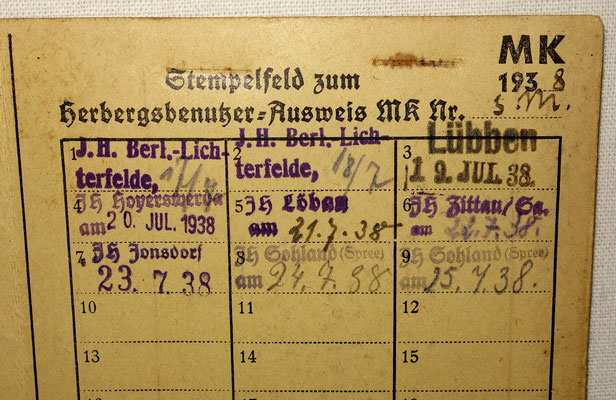 MK
1938
Stempelfeld zum
Herbergsbenutzer-Ausweis MK Nr.
1 J.H. Berl.-Lich-
terfelde,
2 J.H. Berl.-Lich-
terfelde, 18/7
3 Lübben
19. JUL. 38.
4 JH Hoyerswerda
am 20. JUL. 1938
5 JH Löbau
am 21.7.38
6 JH Zittau/Sa.
am 22.7.38.
7 JH Jonsdorf
23. 7. 38
8 JH Sohland (Spree)
am 24.7.38
9 JH Sohland (Spree)
am 25.7.38.
10
11
12
13
14
15